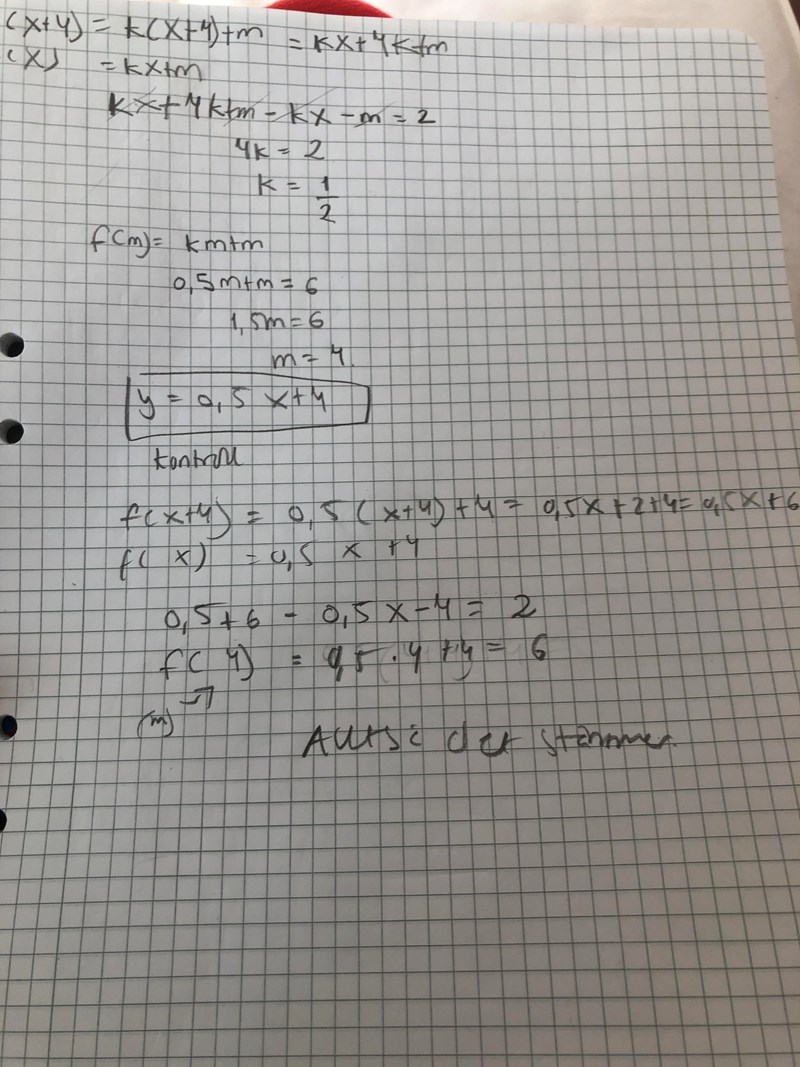 (x+4) = k(x+4)+m = kx+4k+m
(x) = kx+m
kx+4k+m-kx-m=2
4k=2
k=1/2
f(m)= km+m
0,5m+m=6
1,5m=6
m=4
y=0,5x+4
kontroll
f(x+4) = 0,5(x+4)+4= 0,5x+2+4=0,5x+6
f(x) =0,5x+4
0,5+6-0,5x-4=2
f(4) = 0,5·4+4=6
(m)
Alltså det stämmer